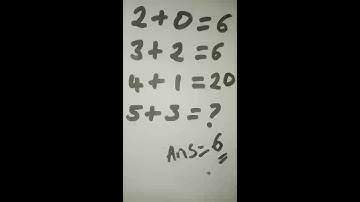 2+0=6
3+2=6
4+1=20
5+3=?
Ans=6